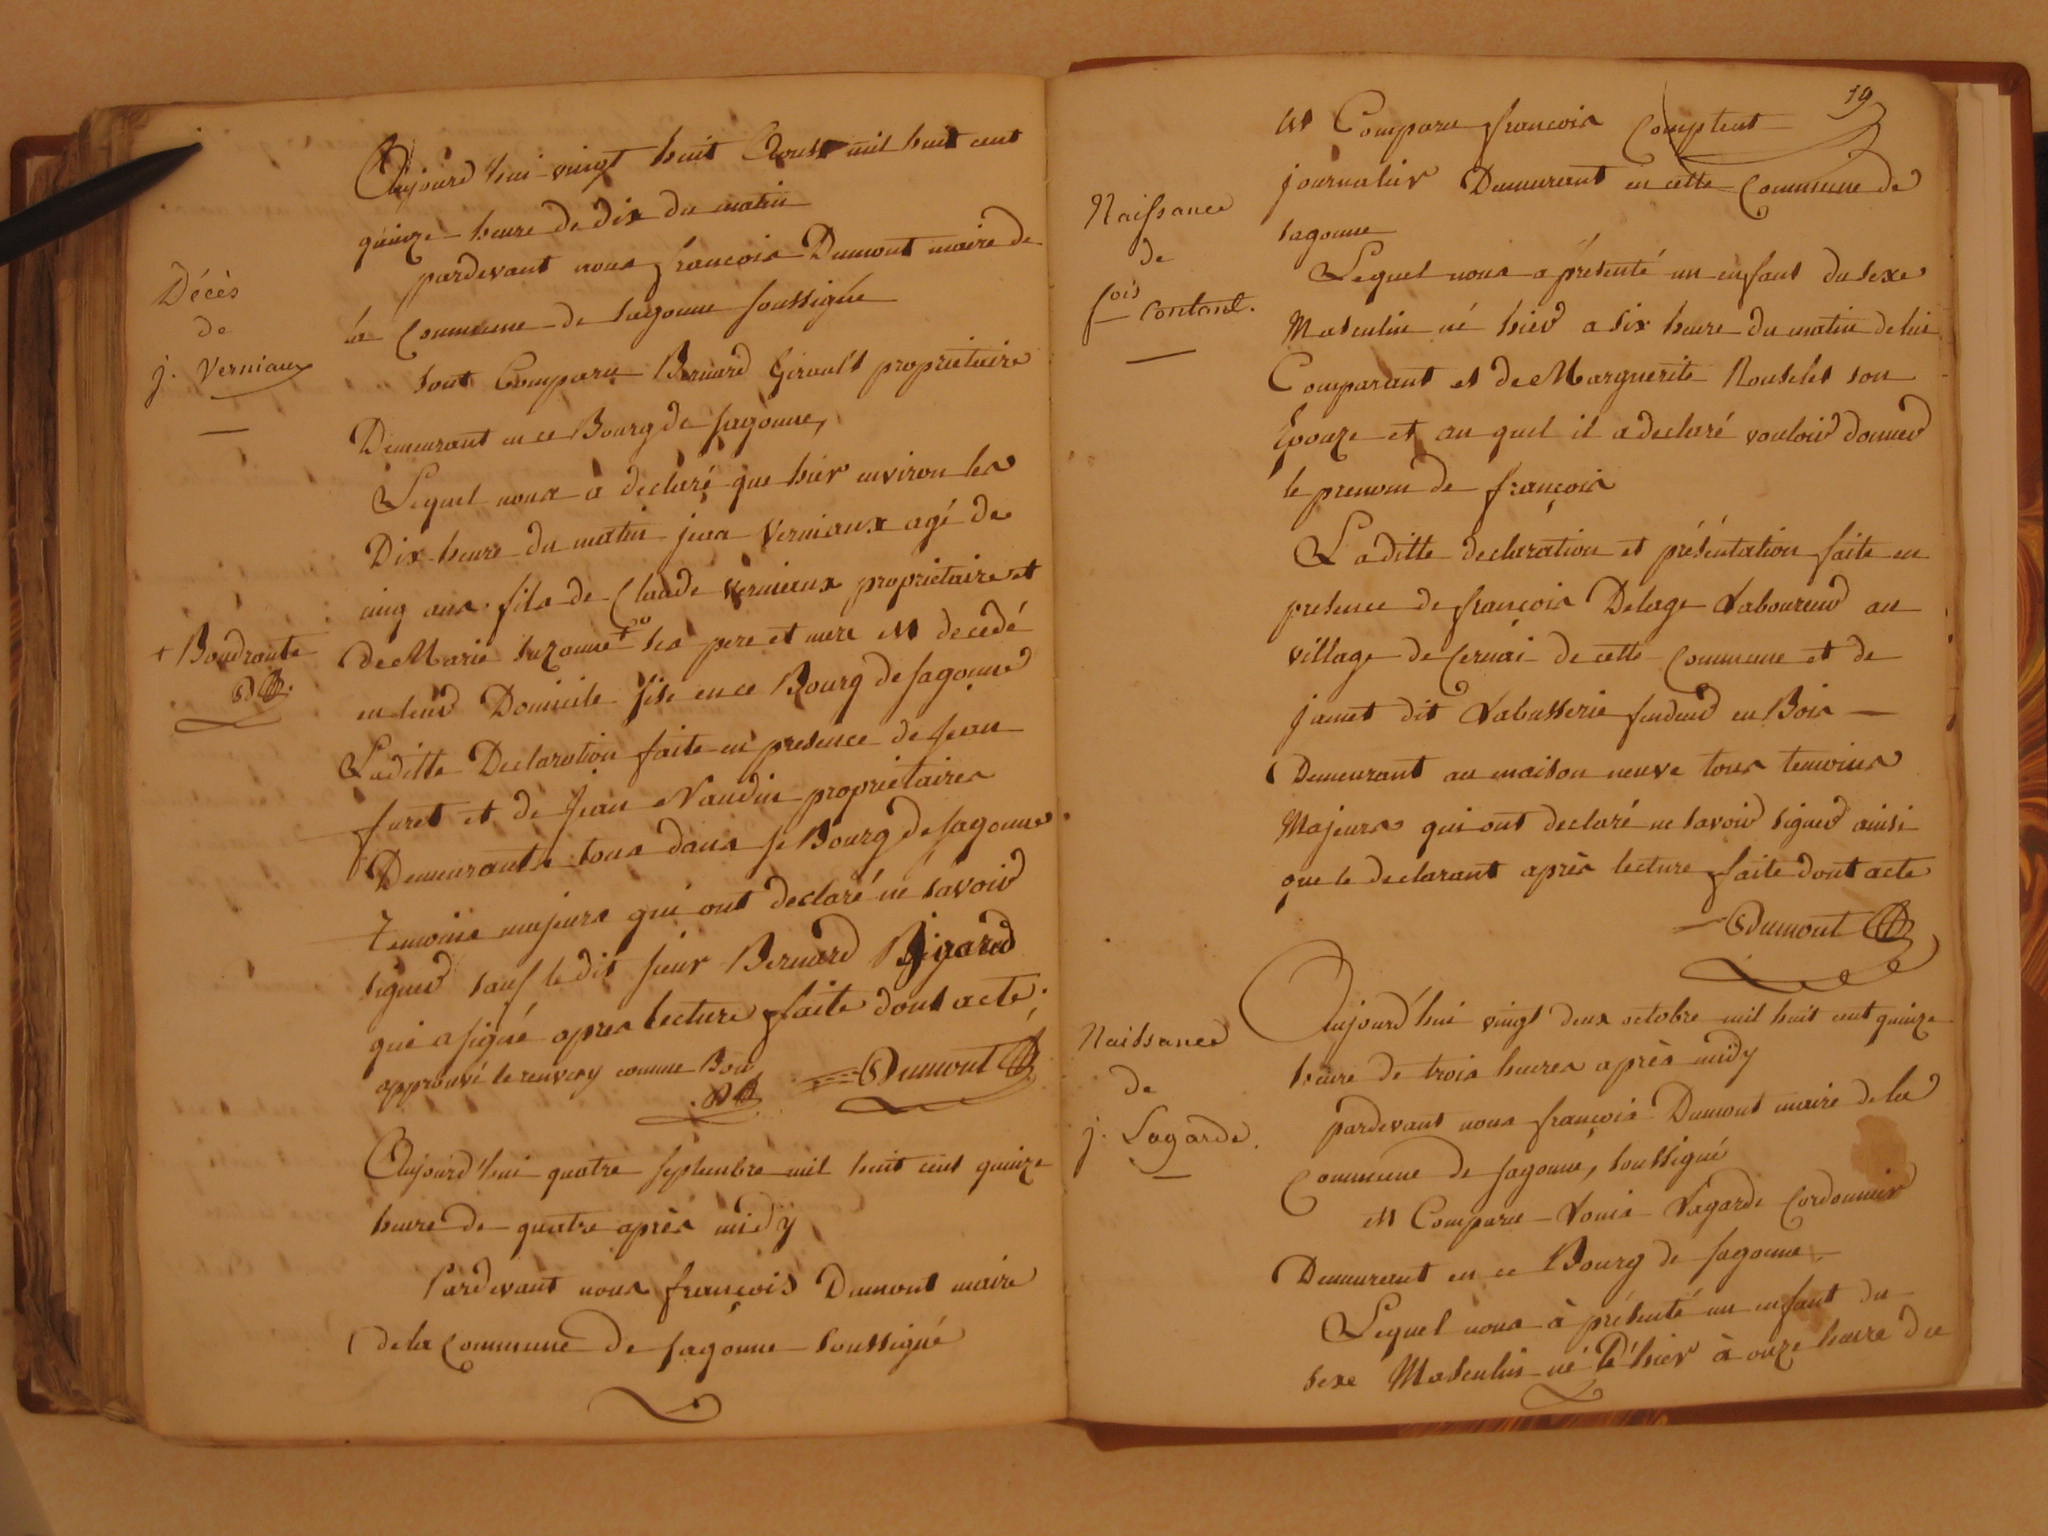 Décès
de
j. Verniaux
+ Boudrante
Aujourd'hui vingt huit Aoust mil huit cent
quinze heure de dix du matin
pardevant nous françois Dumont maire de
la Commune de Sagonne soussigné
sont Comparu Bernard Girault proprietaire
Demeurant en ce Bourg de Sagonne,
Lequel nous a declaré que hier environ les
Dix heure du matin jean Verniaux agé de
cinq ans fils de Claude Verniaux proprietaire et
de Marie Suzanne + ses pere et mere est decedé
en leur Domicile sise en ce Bourg de Sagonne
Laditte Declaration faite en presence de Jean
furet et de Jean Naudin proprietaires
Demeurants tous dans se Bourg de Sagonne
Temoins majeurs qui ont declaré ne savoir
signer sauf le dit sieur Bernard
qui a signé apres lecture faite dont acte.
approuvé le renvoy comme Bon
Dumont
Aujourd'hui quatre septembre mil huit cent quinze
heure de quatre après midy
Pardevant nous françois Dumont maire
de la Commune de Sagonne soussigné
19
Naissance
de
fois Contant.
est Comparu françois Comptent
journalier Demeurant en cette Commune de
Sagonne
Lequel nous a présenté un enfant du sexe
Masculin né hier a six heure du matin de lui
Comparant et de Marguerite Rouselet son
Epouze et au quel il a declaré vouloir donner
le prenom de françois
Laditte declaration et présentation faite en
presence de françois Delage Laboureur au
village de Cernai de cette Commune et de
jamet dit Labusserie fendeur en Bois
Demeurant au maison neuve tous temoins
Majeurs qui ont declaré ne savoir signer ainsi
que le declarant après lecture faite dont acte
Dumont
Naissance
de
j. Lagarde.
Aujourd'hui vingt deux octobre mil huit cent quinze
heure de trois heures après midy
pardevant nous françois Dumont maire de la
Commune de Sagonne, soussigné
est Comparu Louis Lagarde Cordonnier
Demeurant en ce Bourg de Sagonne
Lequel nous à présenté un enfant du
sexe Masculin né hier à onze heure du